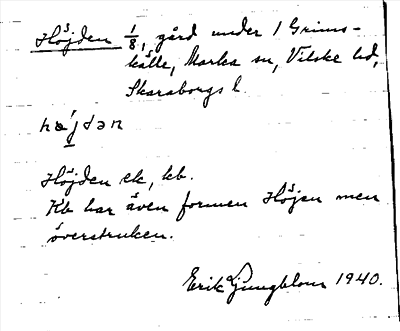 Höjden 1/8, gård under 1 Grims-
källe, Marka sn, Vilske hd,
Skaraborgs l.
hø̀jdən
Höjden ek, kb.
Kb har även formen Höjen men
överstruken.
Erik Ljungblom 1940.